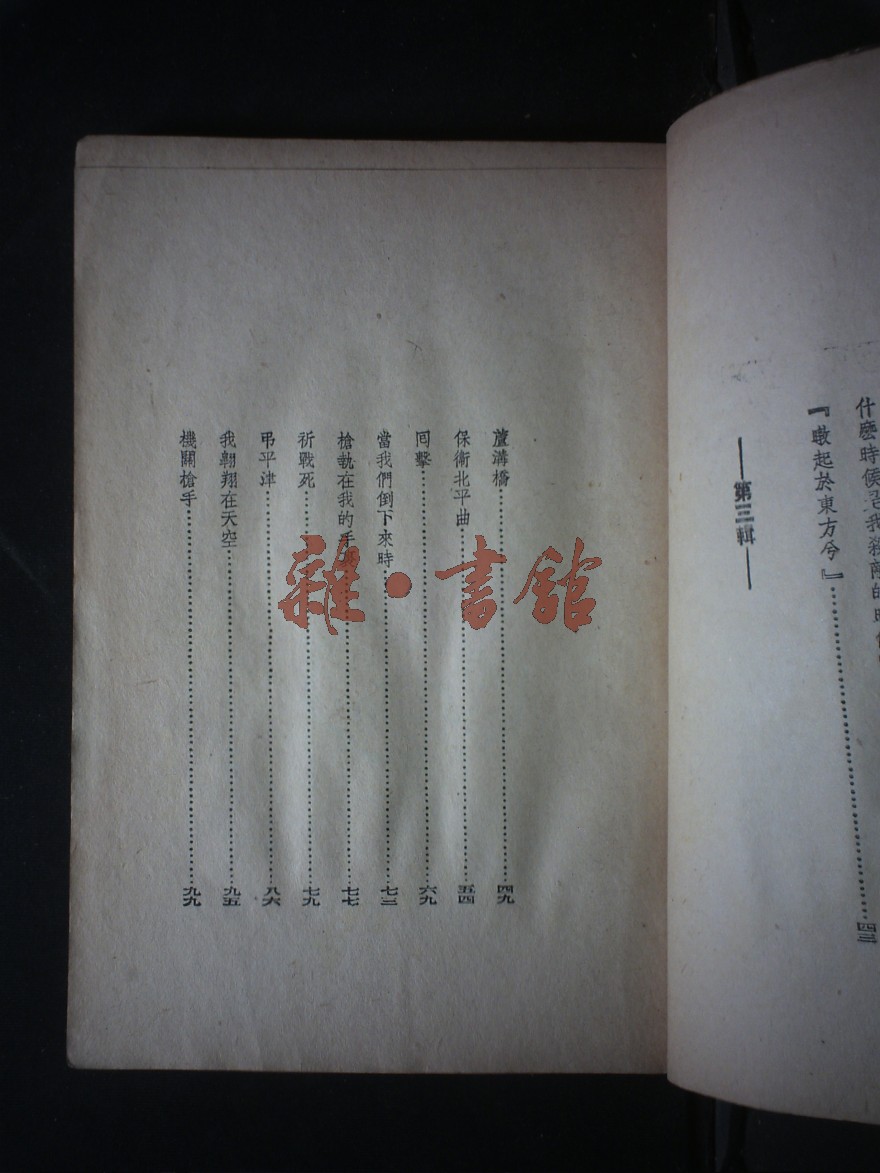 什麽時候
『暾起於東方兮』……四三
——第三輯——
蘆溝橋……四九
保衛北平曲……五四
回擊……六九
當我們倒下來時……七三
槍執在我的手……七七
祈戰死……七九
弔平津……八六
我翱翔在天空……九五
機關槍手……九九
雜·書館